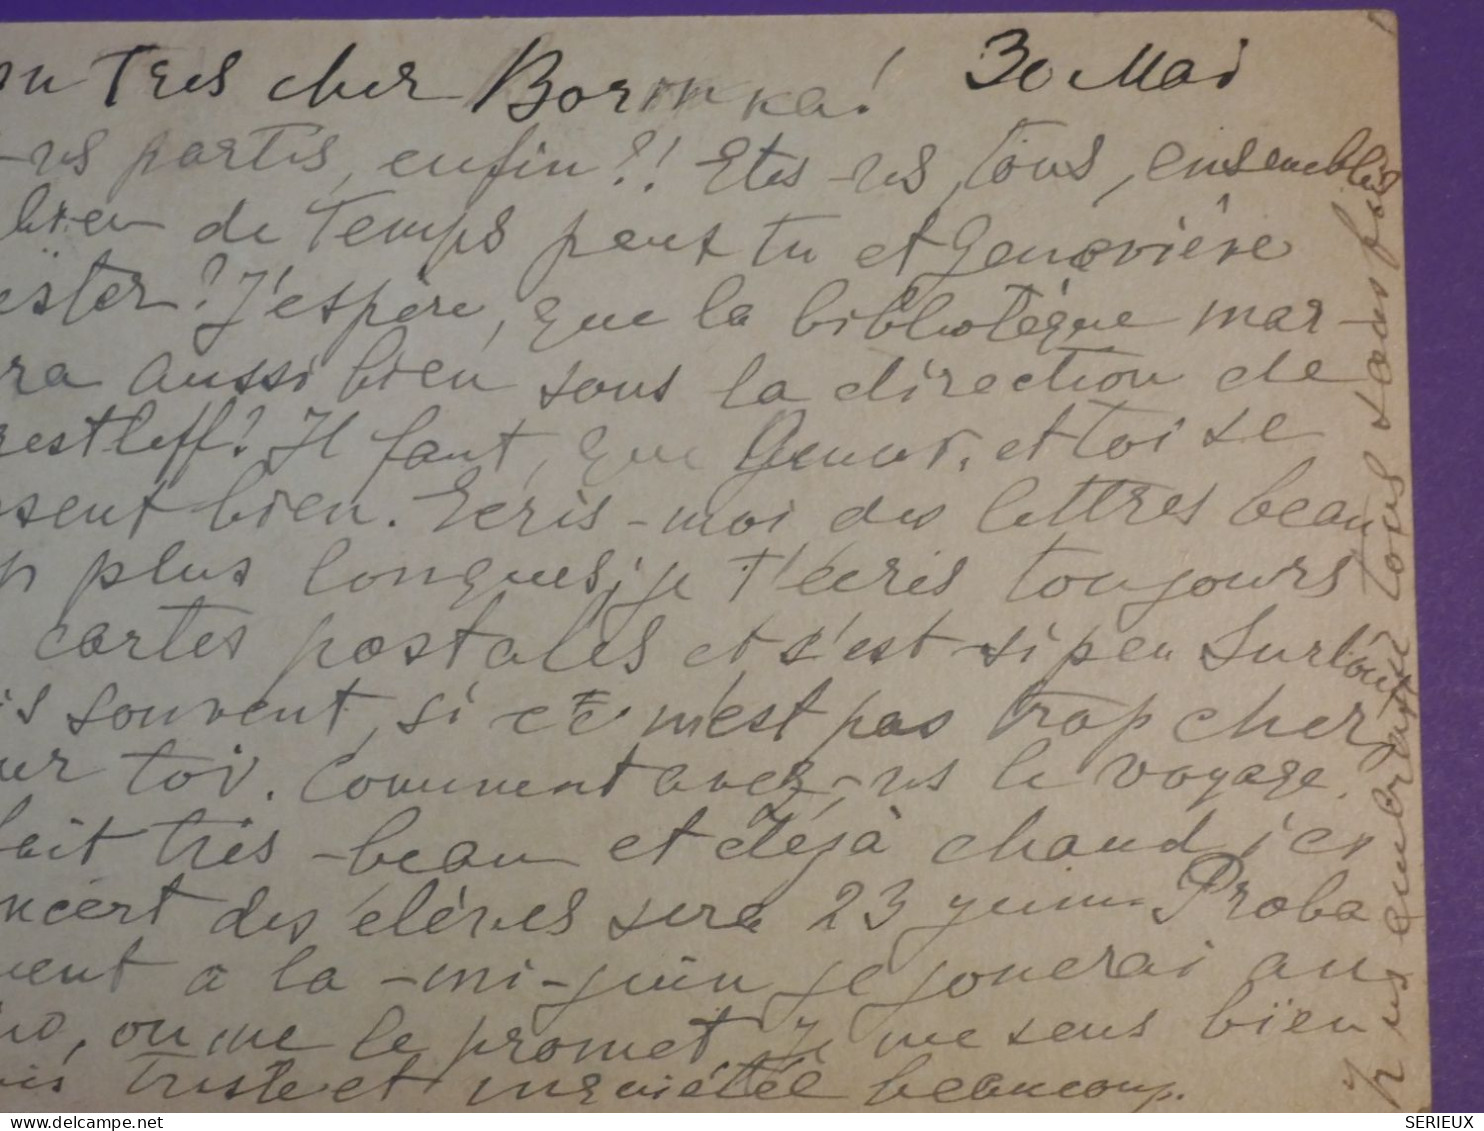 on Tres cher Borinka! 30 Mai
-vs partis, enfin?! Etes-vs, tous, ensembles
bien de Temps peux tu et Geneviève
ester? J'espère, que la bibliotèque mar-
ra aussi bien sous la direction de
restleff? Il faut, que Genev. et toi se
sent bien. Ecris-moi des lettres beau
p plus longues, je t'écris toujours
cartes postales et s'est si peu Surtout
is souvent, si ce n'est pas trop cher
ur toi. Comment avez-vs le voyage.
fait très-beau et déjà chaud ici
ncert des élèves sera 23 juin Proba
ment a la-mi-juin je jouerai au
, on me le promet. Je me sens bien
is triste et inquiétée beaucoup.
je vs embrasse tous sans fois
www.delcampe.net
SERIEUX